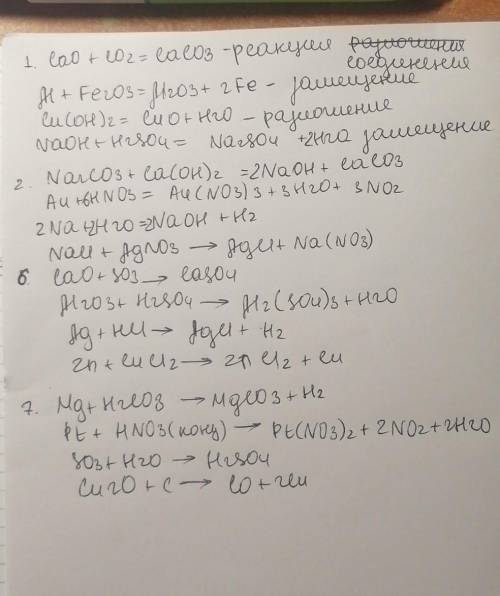 1. CaO + CO2 = CaCO3 - реакция разложения
соединения
Al + Fe2O3 = Al2O3 + 2Fe - замещение
Cu(OH)2 = CuO + H2O - разложение
NaOH + H2SO4 = Na2SO4 + 2H2O замещение
2. Na2CO3 + Ca(OH)2 = 2NaOH + CaCO3
Au + 6HNO3 = Au(NO3)3 + 3H2O + 3NO2
2Na + 2H2O = 2NaOH + H2
NaCl + AgNO3 → AgCl + Na(NO3)
6. CaO + SO3 → CaSO4
Al2O3 + H2SO4 → Al2(SO4)3 + H2O
Ag + HCl → AgCl + H2
Zn + CuCl2 → ZnCl2 + Cu
7. Mg + H2CO3 → MgCO3 + H2
Pt + HNO3(конц) → Pt(NO3)2 + 2NO2 + 2H2O
SO3 + H2O → H2SO4
Cu2O + C → CO + 2Cu